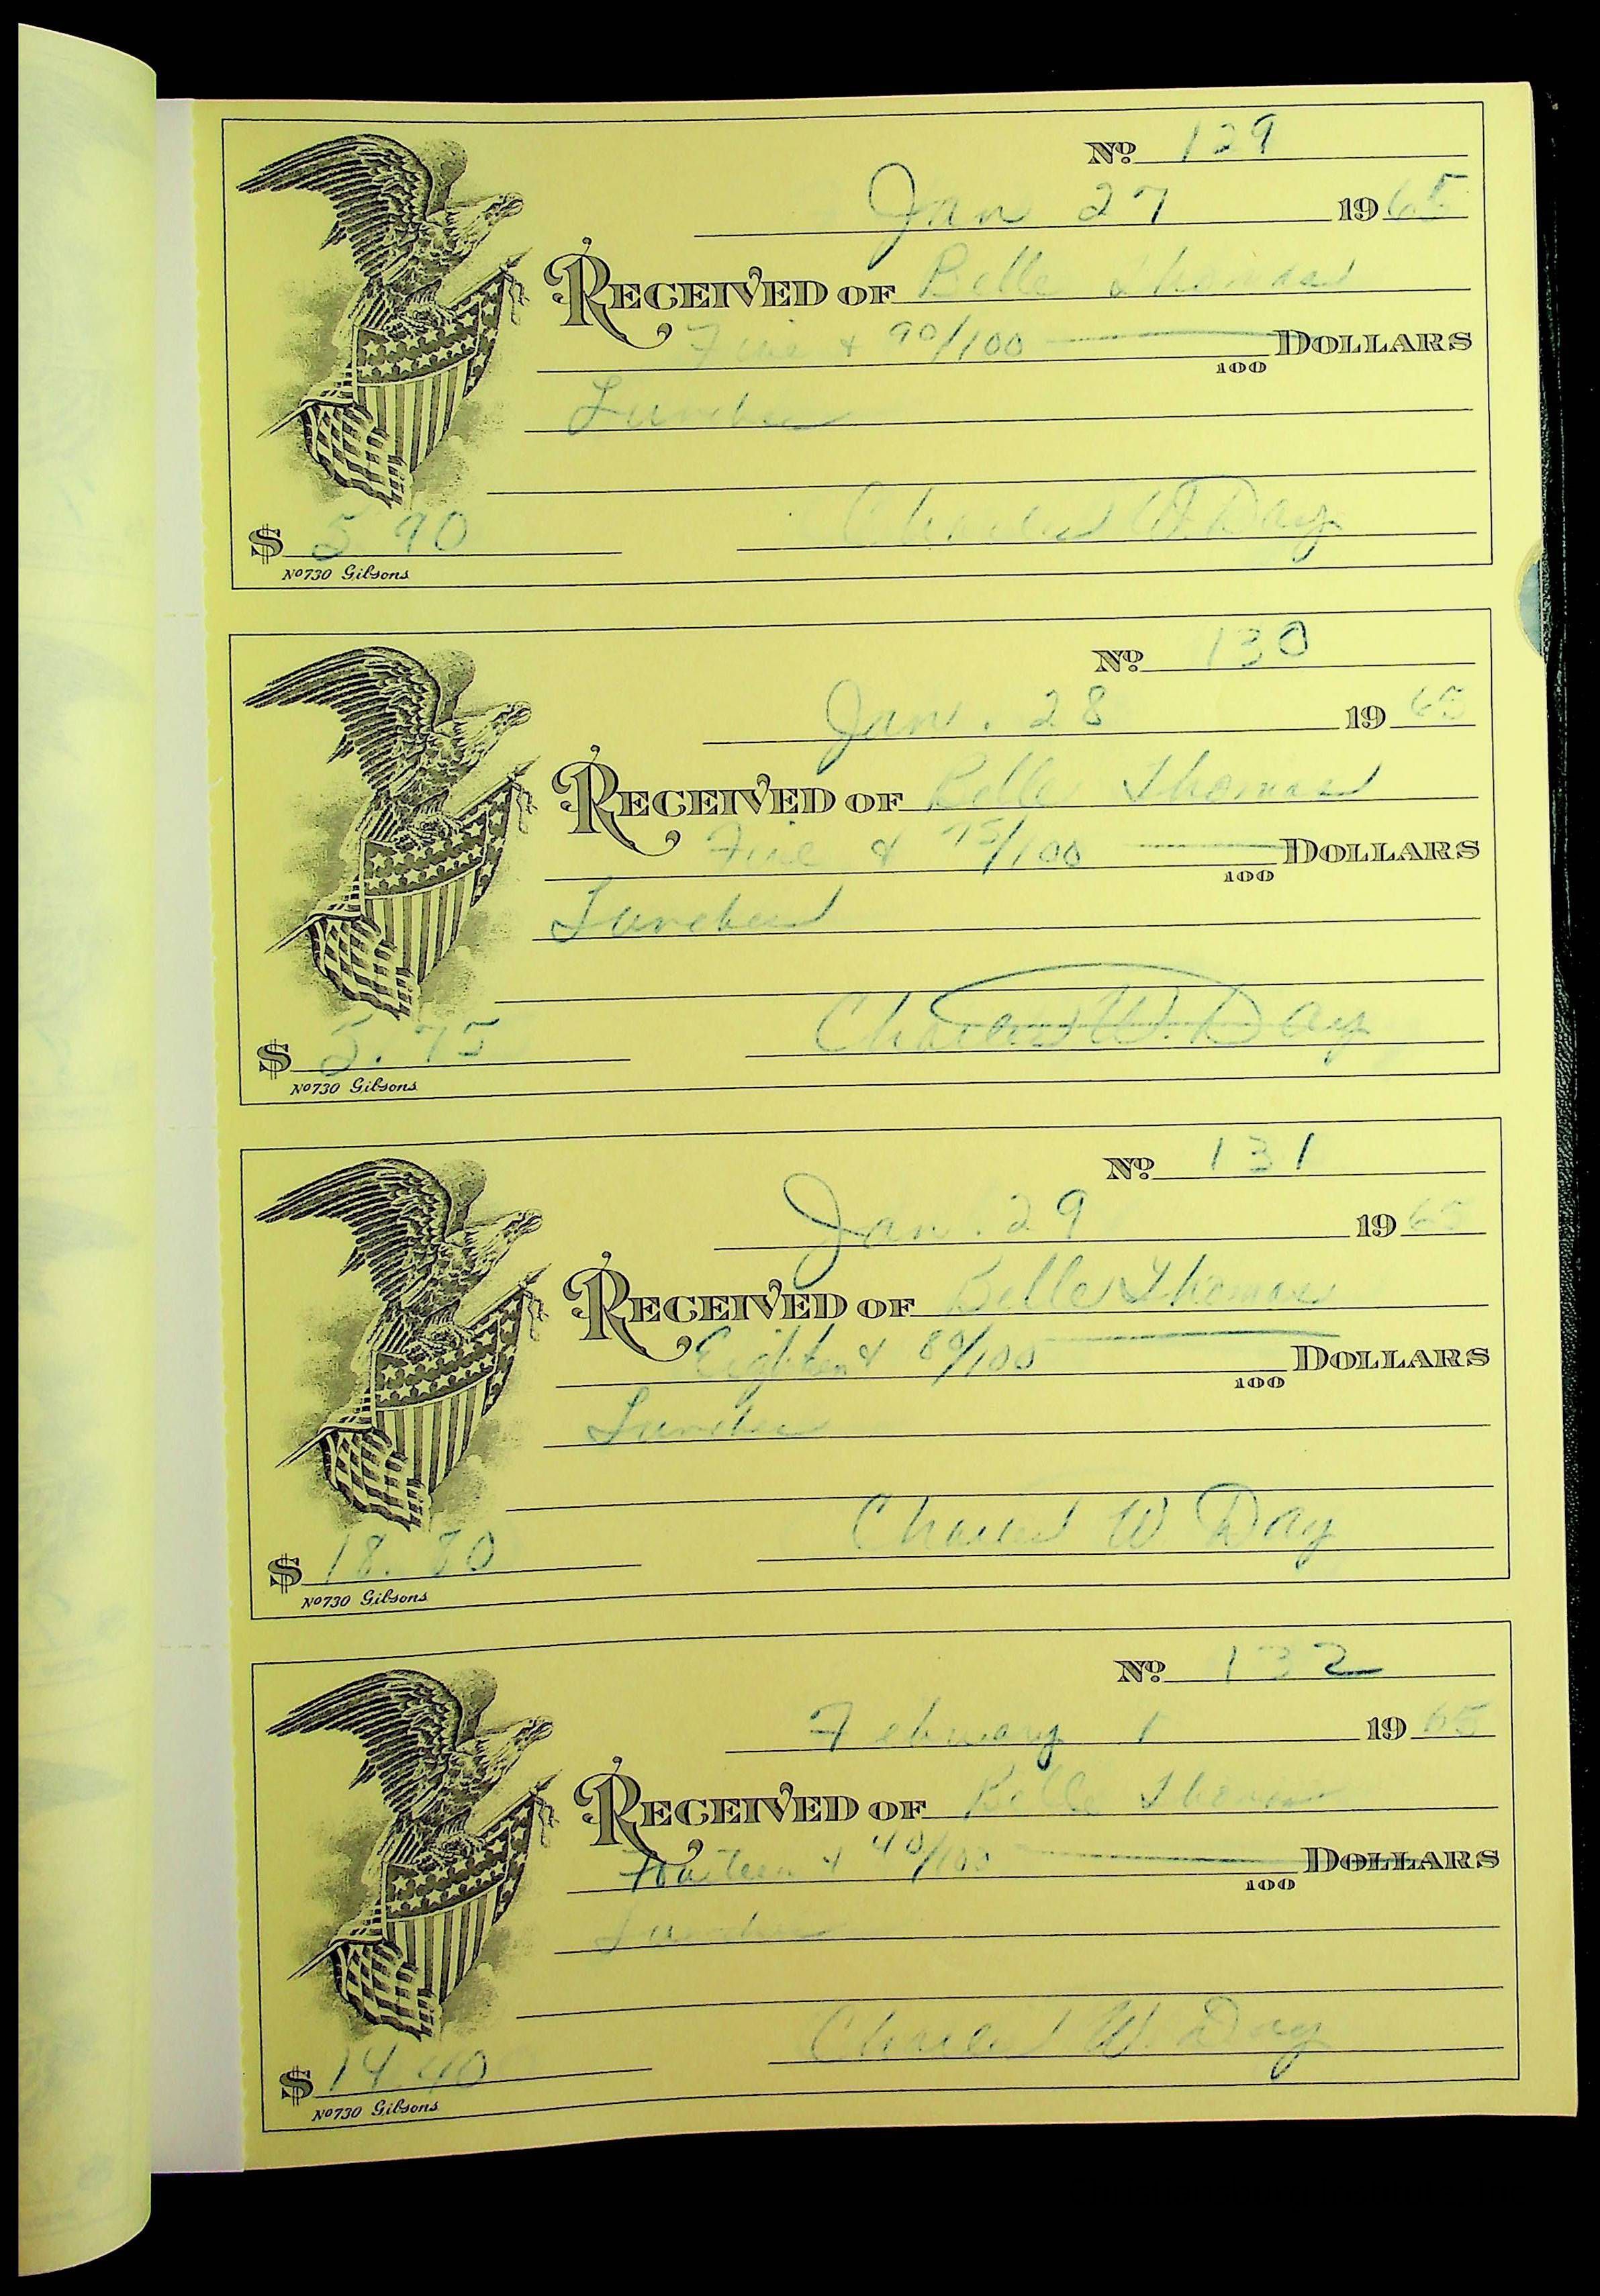 No. 129
Jan 27 1965
RECEIVED OF Belle Thomas
Five & 90/100 DOLLARS
100
Lunches
Charles W. Day
$ 5.90
No 730 Gibsons
No. 130
Jan. 28 1965
RECEIVED OF Belle Thomas
Five & 75/100 DOLLARS
100
Lunches
Charles W. Day
$ 5.75
No 730 Gibsons
No. 131
Jan. 29 1965
RECEIVED OF Belle Thomas
Eighteen & 80/100 DOLLARS
100
Lunches
Charles W Day
$ 18.80
No 730 Gibsons
No. 132
February 1 1965
RECEIVED OF Belle Thomas
Fourteen & 40/100 DOLLARS
100
Lunches
Charles W. Day
$ 14.40
No 730 Gibsons